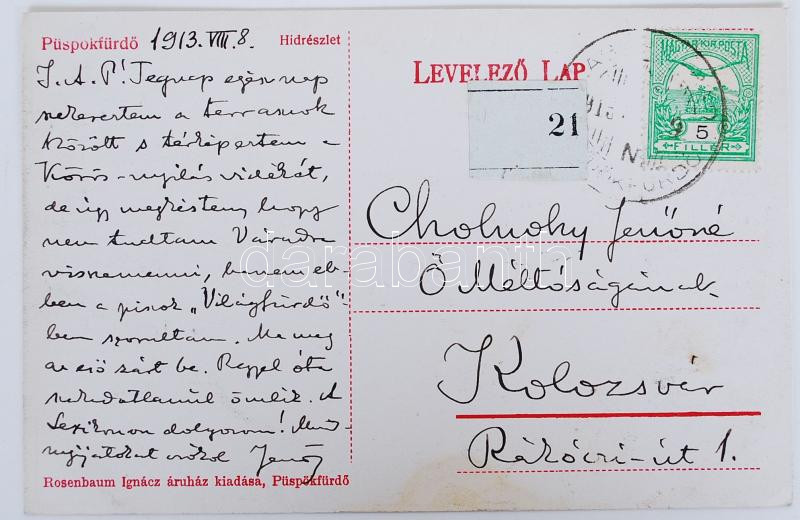 Püspökfürdő 1913. VIII. 8. Hidrészlet
I. A. P! Tegnap egész nap
a terrasuok
között s térképeztem a
Körös-nyilás vidékét,
de úgy megkéstem, hogy
nem tudtam Váradra
visszamenni, hanem eb-
ben a piszok „Világfürdő"-
ben szorultam. Ma meg
az eső zárt be. Reggel óta
szakadatlanúl ömlik. A
Lexikonon dolgozom!
csókol Jenő
Rosenbaum Ignácz áruház kiadása, Püspökfürdő
LEVELEZŐ LAP
21
MAGYAR KIR. POSTA
5
FILLÉR
Cholnoky Jenőné
Ő Méltóságának
Kolozsvár
Rákóczi-út 1.
darabanth